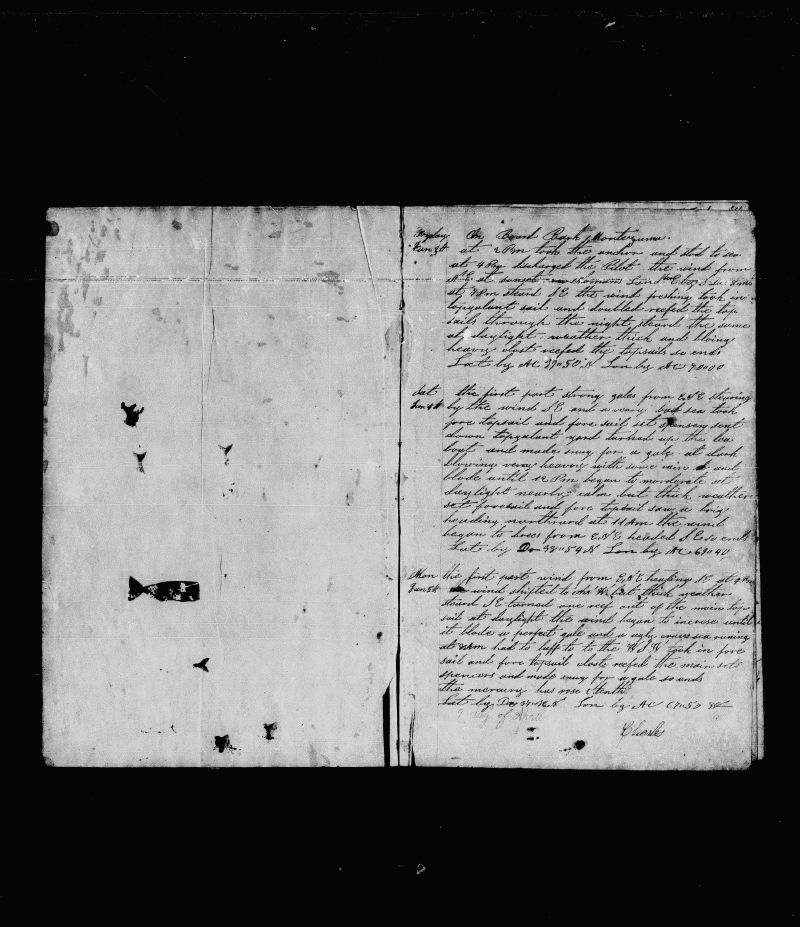 On Board Bark Montezuma.
Jan 3th at 2 Pm took the anchor and stod to sea
at 4 Pm discharged the Pilot the wind from
at sunset
at 8 Pm steard S E the wind freshing took in
topgalant sail and doubled reefed the top
sails through the night steard the same
at daylight weather thick and bloing
heavy clost reefed the topsails so ends
Lat by AC 39=50 N Lon by AC 70=00
Sat the first part strong gales from E N E stearing
Jan 4th by the wind S E and a vary bad sea took
fore topsail and fore sail set spensers sent
down topgalant yard turned up the lea
boat and made snug for a gale at dark
blowing verry heavey with some rain and
blode until 12 Pm began to morderate at
daylight nearly calm but thick weather
set foresail and fore topsail saw a brig
heading northward at 11 Am the wind
began to brees from E N E headed S E so ends
Lat by Dr 38=54 N Lon by AC 69=40
Mon the first part wind from E N E heading S E at
Jan 5th wind shifted to thick weather
steard S E turned one reef out of the main top
sail at daylight the wind began to increse until
it blode a perfect gale and a ugly cross sea runing
at Am had to luff to to the W S W took in fore
sail and fore topsail clost reefed the main sets
spencers and made snug for a gale so ends
the mercury has rose tenth
Lat by Dr Lon by AC 67=50
day of
Charles